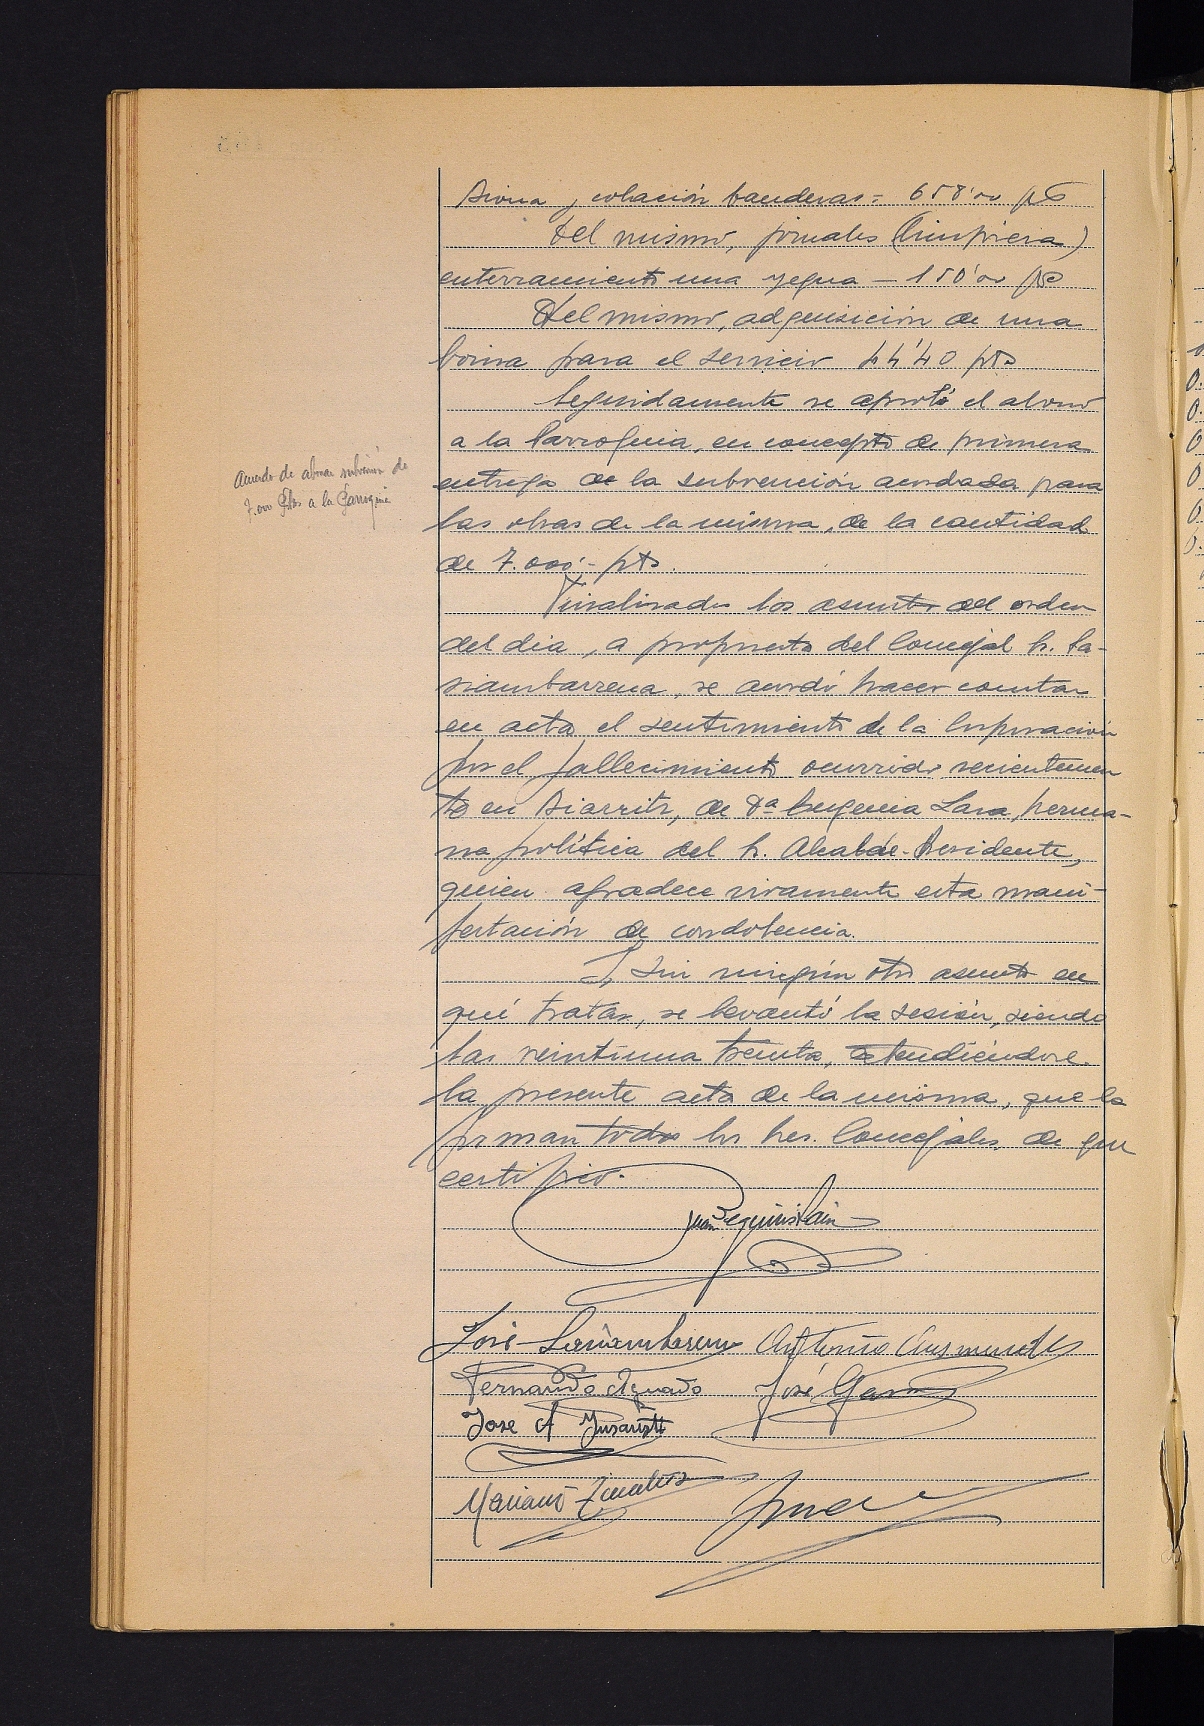 colación banderas = 658'00 pts
Del mismo, jornales (limpieza)
enterramiento una yegua — 150'00 pts
Del mismo, adquisición de una
boina para el servicio 44'40 pts
Seguidamente se aprobó el abono
a la Parroquia, en concepto de primera
entrega de la subvención acordada para
las obras de la misma, de la cantidad
de 7.000.- pts.
Acuerdo de abonar subvención de
7.000 Ptas a la Parroquia
Finalizados los asuntos del orden
del dia, a propuesta del Concejal Sr. La-
siambarrena, se acordó hacer constar
en acta el sentimiento de la Corporación
por el fallecimiento ocurrido recientemen
te en Biarritz, de Dª Eugenia Lara, herma-
na política del Sr. Alcalde-Presidente,
quien agradece vivamente esta mani-
festación de condolencia.
Y sin ningún otro asunto en
qué tratar, se levantó la sesión, siendo
las veintiuna treinta, extendiéndose
la presente acta de la misma, que la
firman todos los Sres. Concejales, de que
certifico.
Juan Beguiristain
José Antonio
Fernando Aguado José
Jose A
Mariano